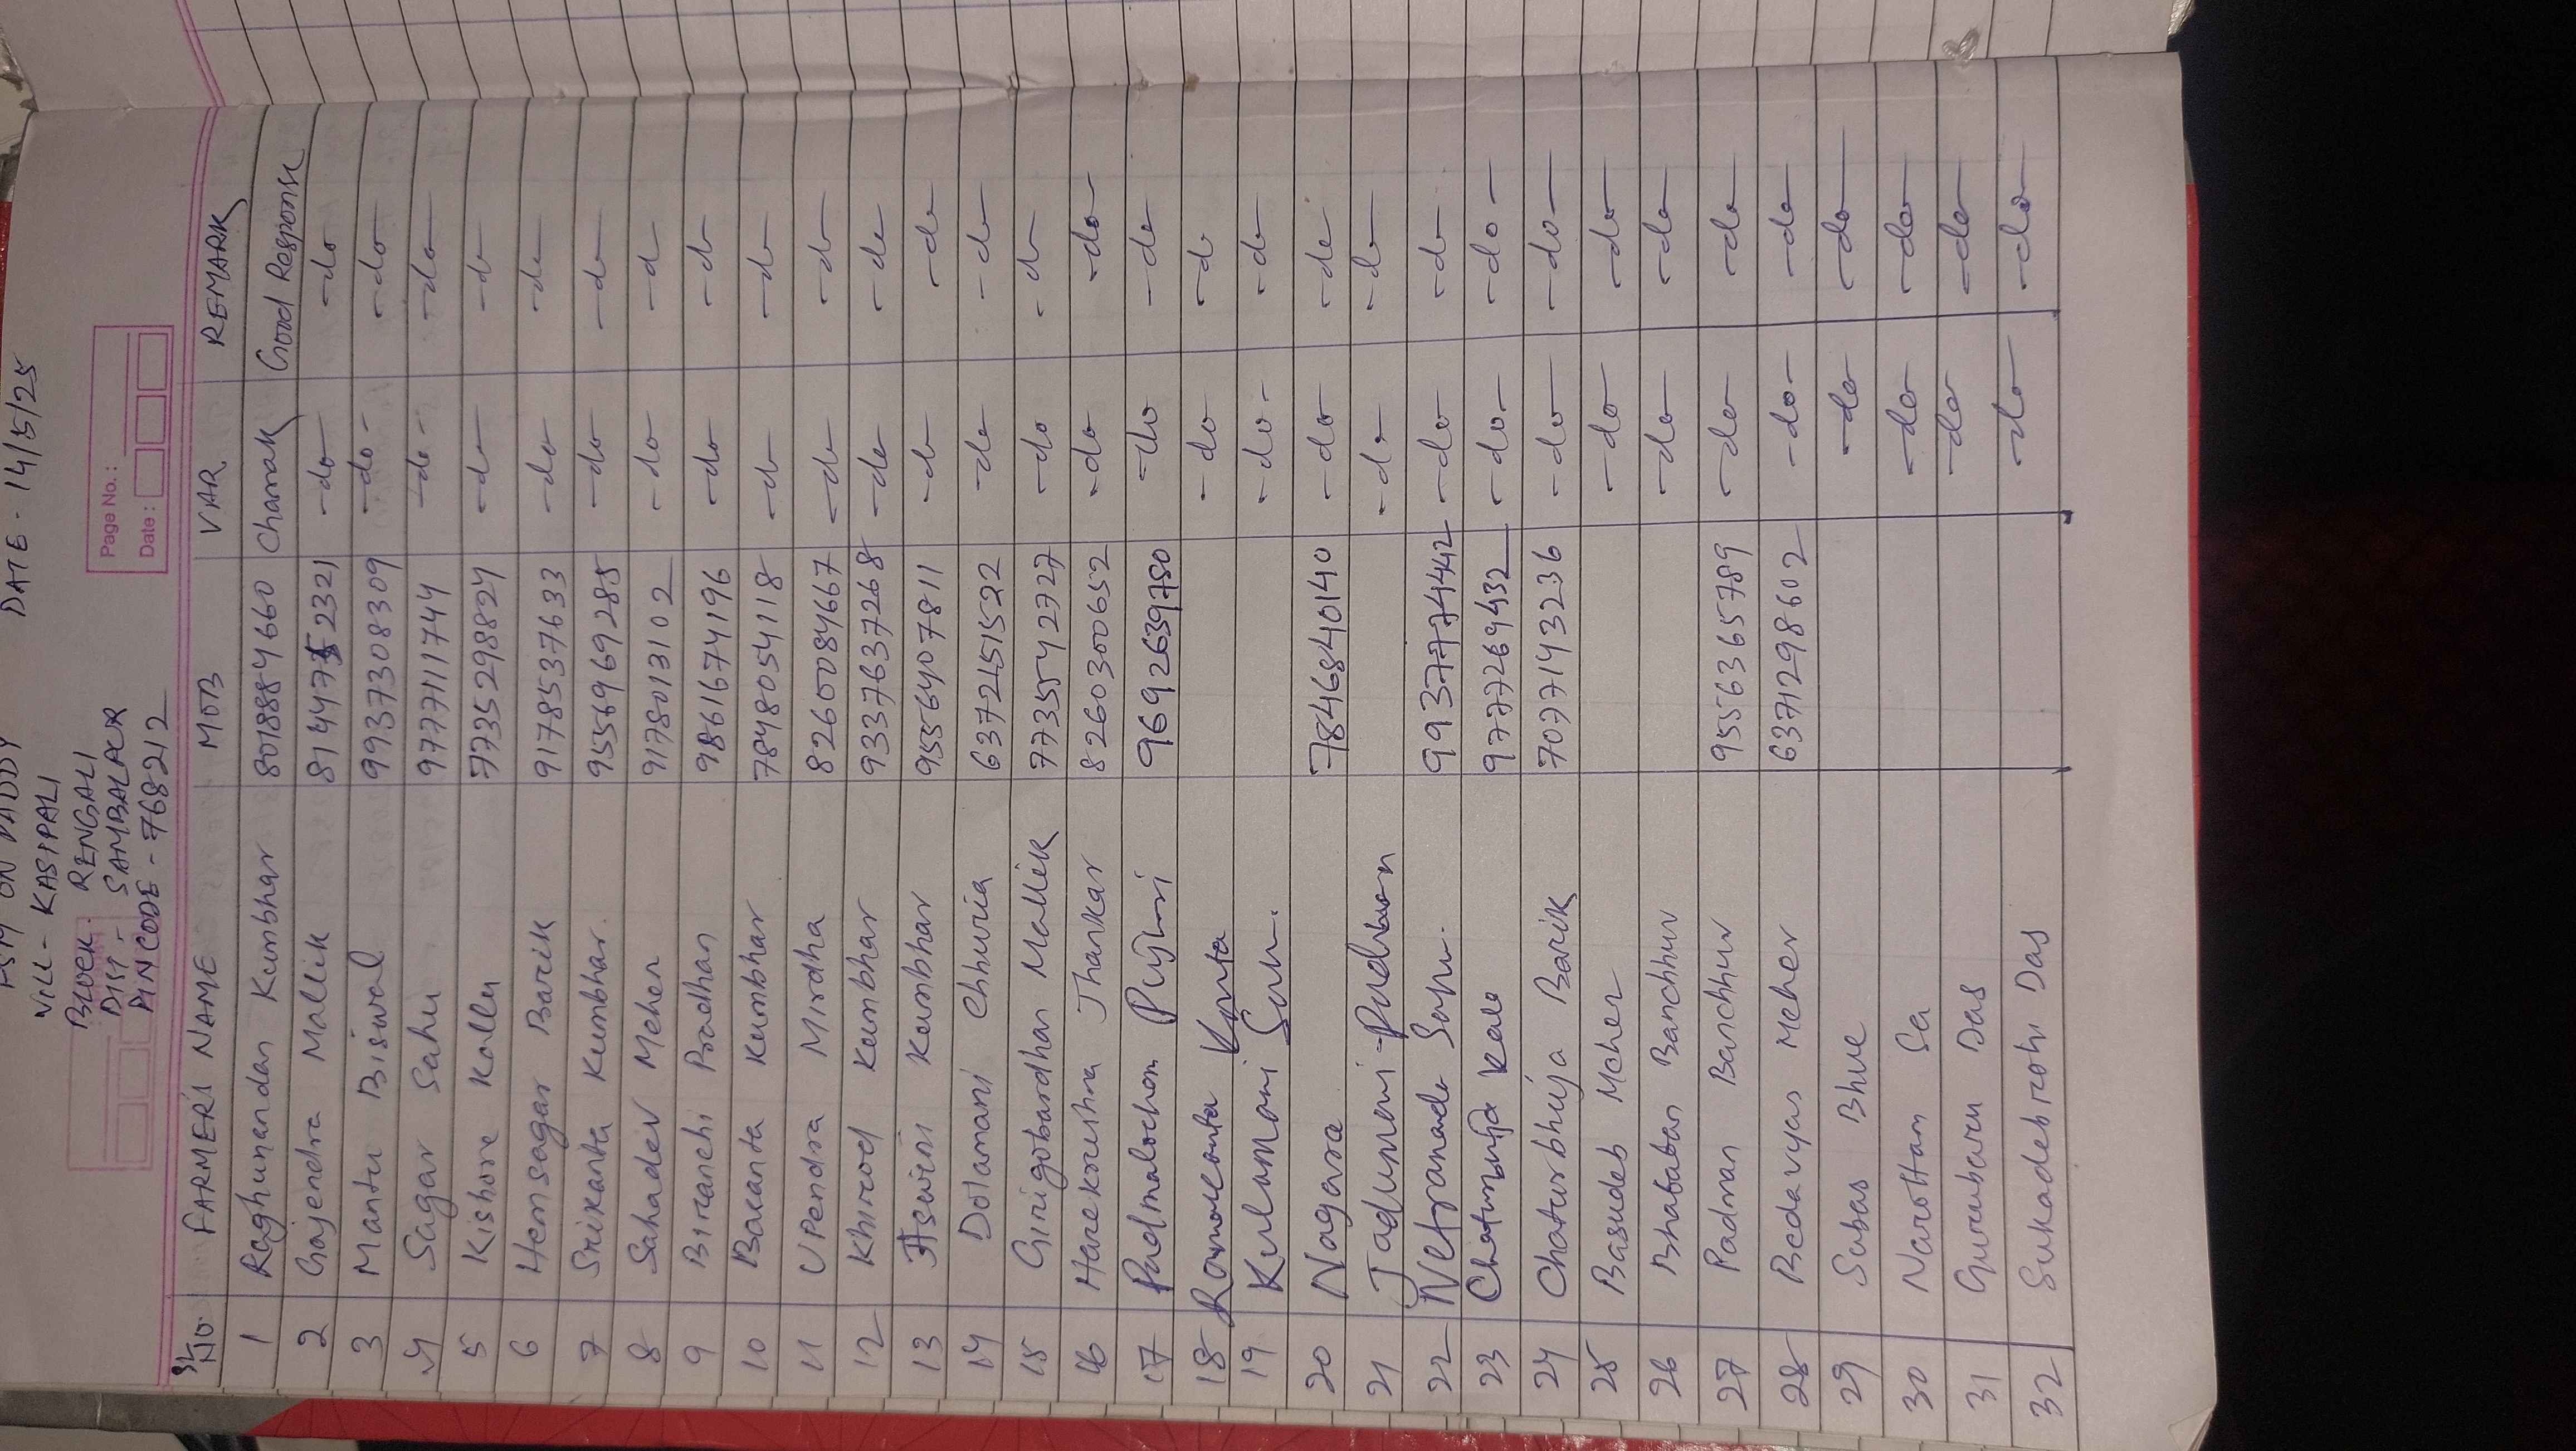 FSM ON PADDY DATE - 14/5/25
VILL - KASIPALI
BLOCK - RENGALI
DIST - SAMBALPUR
PIN CODE - 768212
Page No.:
Date:
SL No. FARMER'S NAME MOB VAR. REMARK
1 Raghunandan Kumbhar 8018884660 Chamak Good Response
2 Gajendra Mallik 8144752321 -do- -do
3 Mantu Biswal 9937308309 -do- -do-
4 Sagar Sahu 9777111744 -do- -do-
5 Kishore Kallu 7735298824 -do- -do-
6 Hemsagar Barik 9178537633 -do- -do-
7 Srikanta Kumbhar. 9556969285 -do -do-
8 Sahadev Meher 9178013102 -do- -do
9 Biranchi Pradhan 9861674196 -do- -do
10 Basanta Kumbhar 7848054118 -do -do-
11 Upendra Mirdha 8260084667 -do- -do-
12 Khirod Kumbhar 9337637268 -do- -do-
13 Aswini Kumbhar 9556407811 -do- -do-
14 Dolamani Chhuria 6372451522 -do -do-
15 Girigobardhan Mallik 7735542727 -do -do-
16 Harekrushna Jhankar 8260300652 -do -do-
17 Padmalochan Pujhri 9692639780 -do -do-
18 Ramakanta -do -do
19 Kulamani Sahu. -do- -do-
20 Nagara 7846840140 -do- -do-
21 Jadumani Padhan -do- -do-
22 Netrananda Sahu. 9937774442 -do- -do-
23 Chaturbhuja Kalo 9777269432 -do- -do-
24 Chaturbhuja Barik 7077143236 -do- -do-
25 Basudeb Meher -do- -do-
26 Bhababan Banchhur -do- -do-
27 Padman Banchhur 9556365789 -do- -do-
28 Bedavyas Meher 6371298602 -do- -do-
29 Subas Bhue -do- -do-
30 Narottam Sa -do- -do-
31 Gurubaru Das -do- -do-
32 Sukadebrothi Das -do- -do-